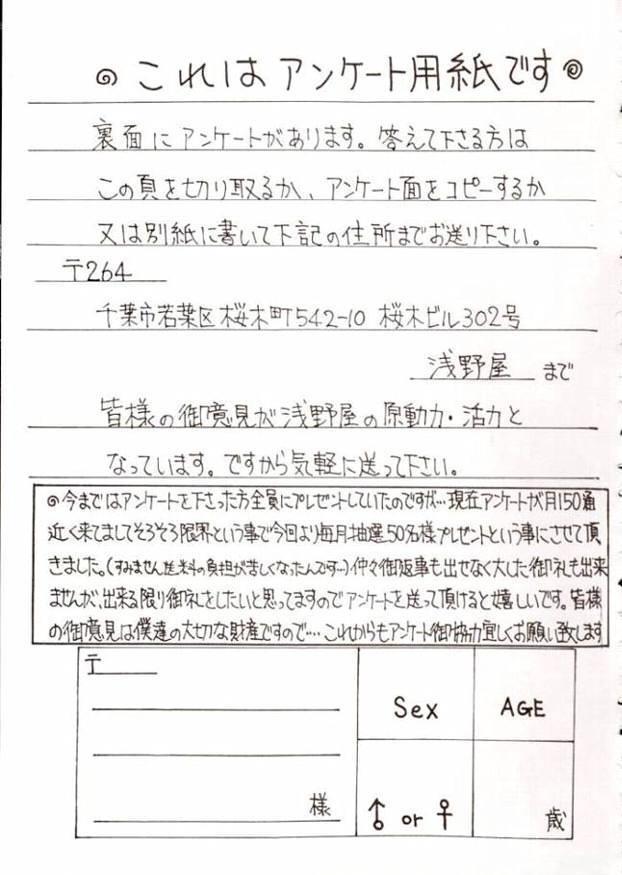 これはアンケート用紙です
裏面にアンケートがあります。答えて下さる方は
この頁を切り取るか、アンケート面をコピーするか
又は別紙に書いて下記の住所までお送り下さい。
〒264
千葉市若葉区桜木町542-10 桜木ビル302号
浅野屋 まで
皆様の御意見が浅野屋の原動力・活力と
なっています。ですから気軽に送って下さい。
◎今まではアンケートを下さった方全員にプレゼントしていたのですが…現在アンケートが月150通
近く来てましてそろそろ限界という事で今回より毎月抽選50名様プレゼントという事にさせて頂
きました。(すみません送料の負担が苦しくなったんですー)仲々御返事も出せなく大した御礼も出来
ませんが、出来る限り御礼をしたいと思ってますのでアンケートを送って頂けると嬉しいです。皆様
の御意見は僕達の大切な財産ですので…これからもアンケート御協力宜しくお願い致します
〒
Sex AGE
様 ♂ or ♀ 歳